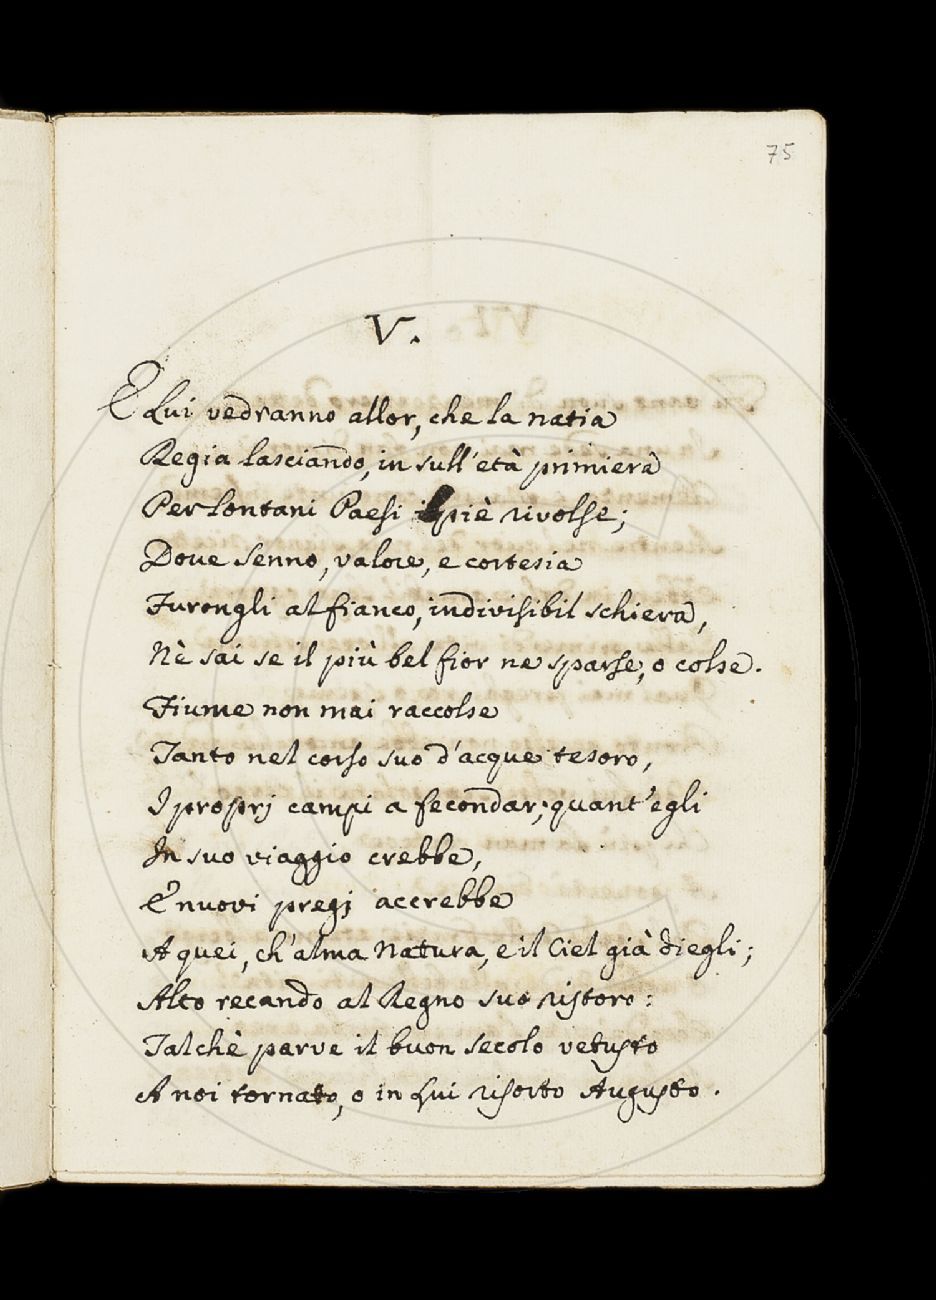 75
V.
E Lui vedranno allor, che la natia
Regia lasciando, in sull'età primiera
Per lontani Paesi il piè rivolse;
Dove senno, valore, e cortesia
Furongli al fianco, indivisibil schiera,
Nè sai se il più bel fior ne sparse, o colse.
Fiume non mai raccolse
Tanto nel corso suo d'acque tesoro,
I proprj campi a fecondar; quant'egli
In suo viaggio crebbe,
E nuovi pregj accrebbe
A quei, ch'alma Natura, e il Ciel già diegli;
Alto recando al Regno suo ristoro:
Talchè parve il buon secolo vetusto
A noi tornato, o in Lui risorto Augusto.